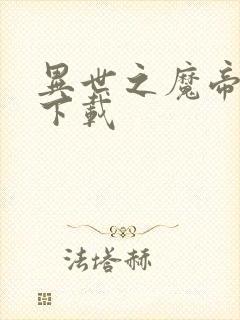 異世之魔帝
下載
法塔赫